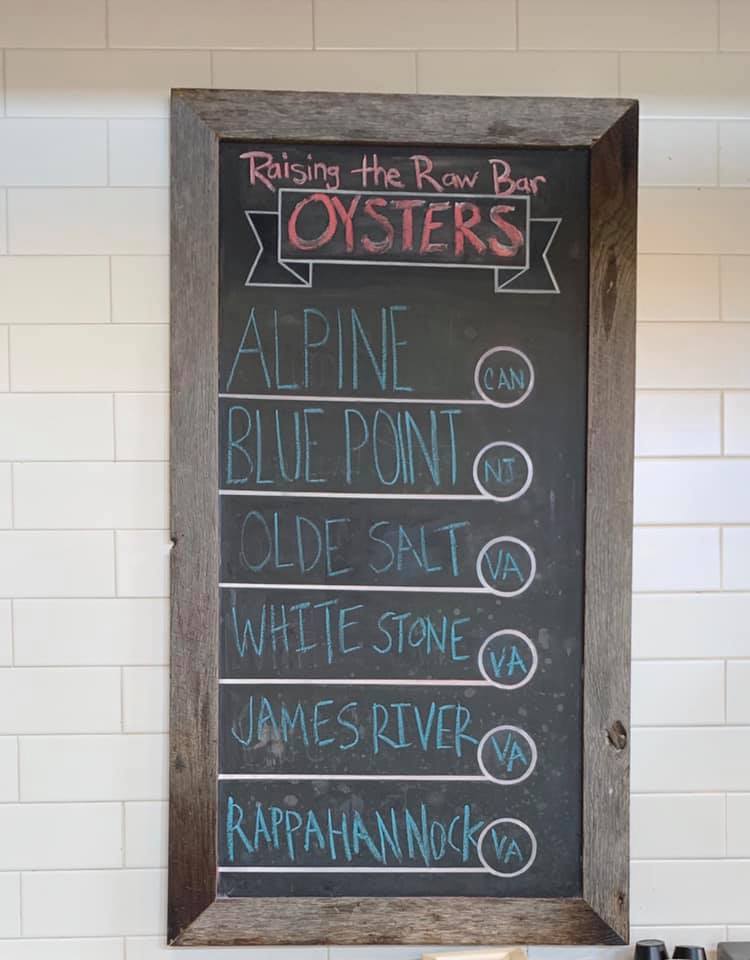 Raising the Raw Bar
OYSTERS
ALPINE CAN
BLUE POINT NJ
OLDE SALT VA
WHITE STONE VA
JAMES RIVER VA
RAPPAHANNOCK VA